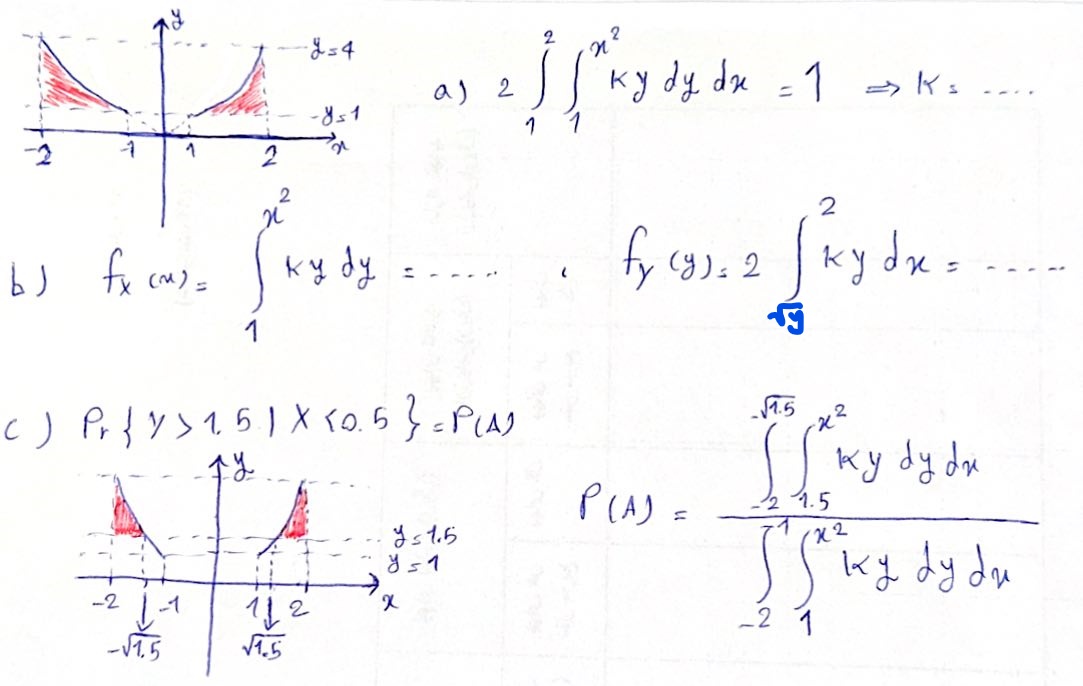 y
y=4
y=1
-2 -1 1 2 x
a) 2 ∫₁² ∫₁^{x²} ky dy dx = 1 ⇒ K = ....
b) f_X(x) = ∫₁^{x²} ky dy = ..... , f_Y(y) = 2 ∫_{√y}^{2} ky dx = .....
c) Pr{Y>1.5 | X<0.5} = P(A)
y
y=1.5
y=1
-2 -1 1 2 x
-√1.5 √1.5
P(A) = \frac{∫_{-2}^{-√1.5} ∫_{1.5}^{x²} ky dy dx}{∫_{-2}^{-1} ∫_{1}^{x²} ky dy dx}